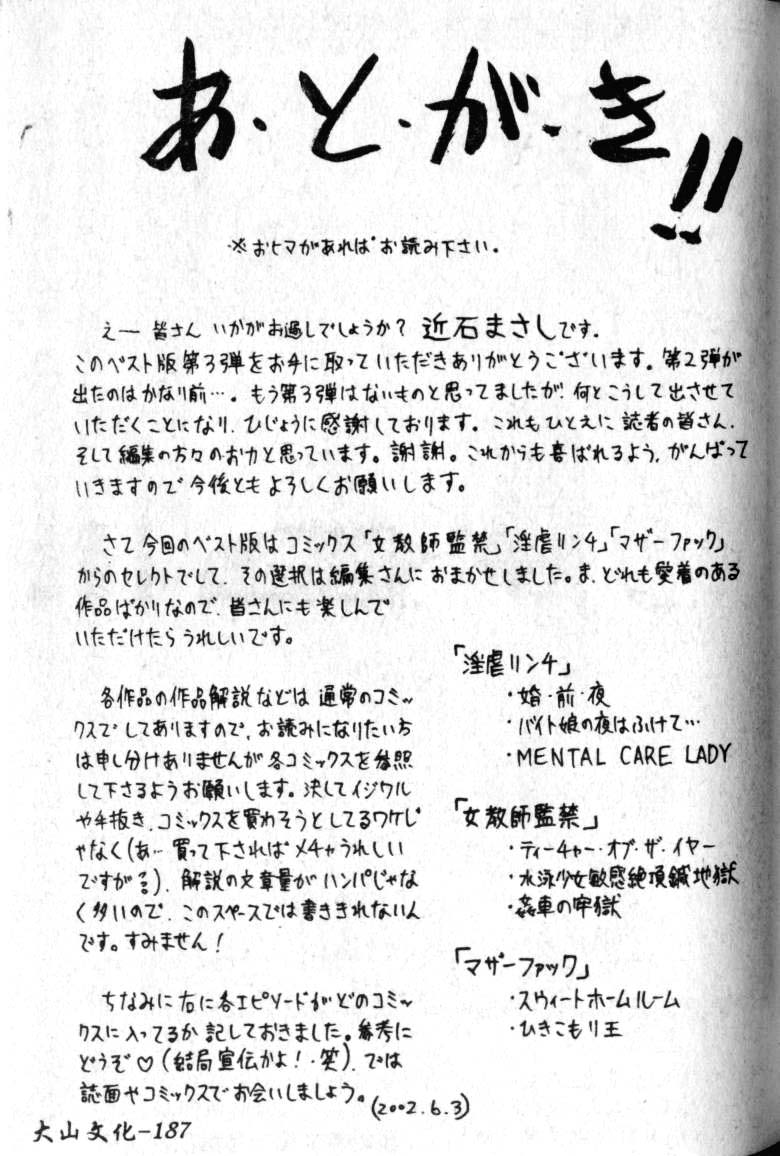 あ・と・が・き!!
※おヒマがあればお読み下さい。
えー 皆さん いかがお過しでしょうか? 近石まさしです.
このベスト版第3弾をお手に取っていただきありがとうございます。第2弾が
出たのはかなり前…。もう第3弾はないものと思ってましたが! 何とこうして出させて
いただくことになり、ひじょうに感謝しております。これもひとえに読者の皆さん、
そして編集の方々のお力と思っています。謝謝。これからも喜ばれるよう、がんばって
いきますので今後ともよろしくお願いします。
さて今回のベスト版はコミックス「女教師監禁」「淫虐リンチ」「マザーファック」
からのセレクトでして、その選択は編集さんにおまかせしました。ま、どれも愛着のある
作品ばかりなので、皆さんにも楽しんで
いただけたらうれしいです。
各作品の作品解説などは通常のコミッ
クスでしてありますので、お読みになりたい方
は申し分けありませんが各コミックスを参照
して下さるようお願いします。決してイジワル
や手抜き、コミックスを買わそうとしてるワケじ
ゃなく(あ… 買って下さればメチャうれしい
ですが)、解説の文章量がハンパじゃな
く多いので、このスペースでは書ききれないん
です。すみません!
ちなみに右に各エピソードがどのコミッ
クスに入ってるか記しておきました。参考に
どうぞ♡(結局宣伝かよ!・笑)、では
誌面やコミックスでお会いしましょう。
(2002.6.3)
「淫虐リンチ」
・婚・前・夜
・バイト娘の夜はふけて…
・MENTAL CARE LADY
「女教師監禁」
・ティーチャー・オブ・ザ・イヤー
・水泳少女敏感絶頂鍼地獄
・姦車の牢獄
「マザーファック」
・スウィートホームルーム
・ひきこもり王
大山文化-187